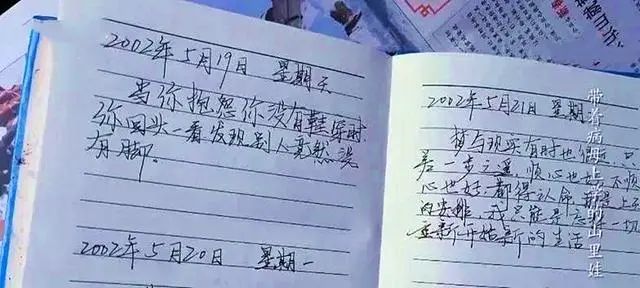 2002年5月19日 星期天
当你抱怨你没有鞋穿时,
你回头一看发现别人竟然没
有脚。
2002年5月20日 星期一
2002年5月21日 星期
与现实有时也
差一步之遥 顺心也好 不顺
心也好 都得认命 是上
的安排 我只能是忘 一切
重新开始新的生活
带着病母上学的山里娃